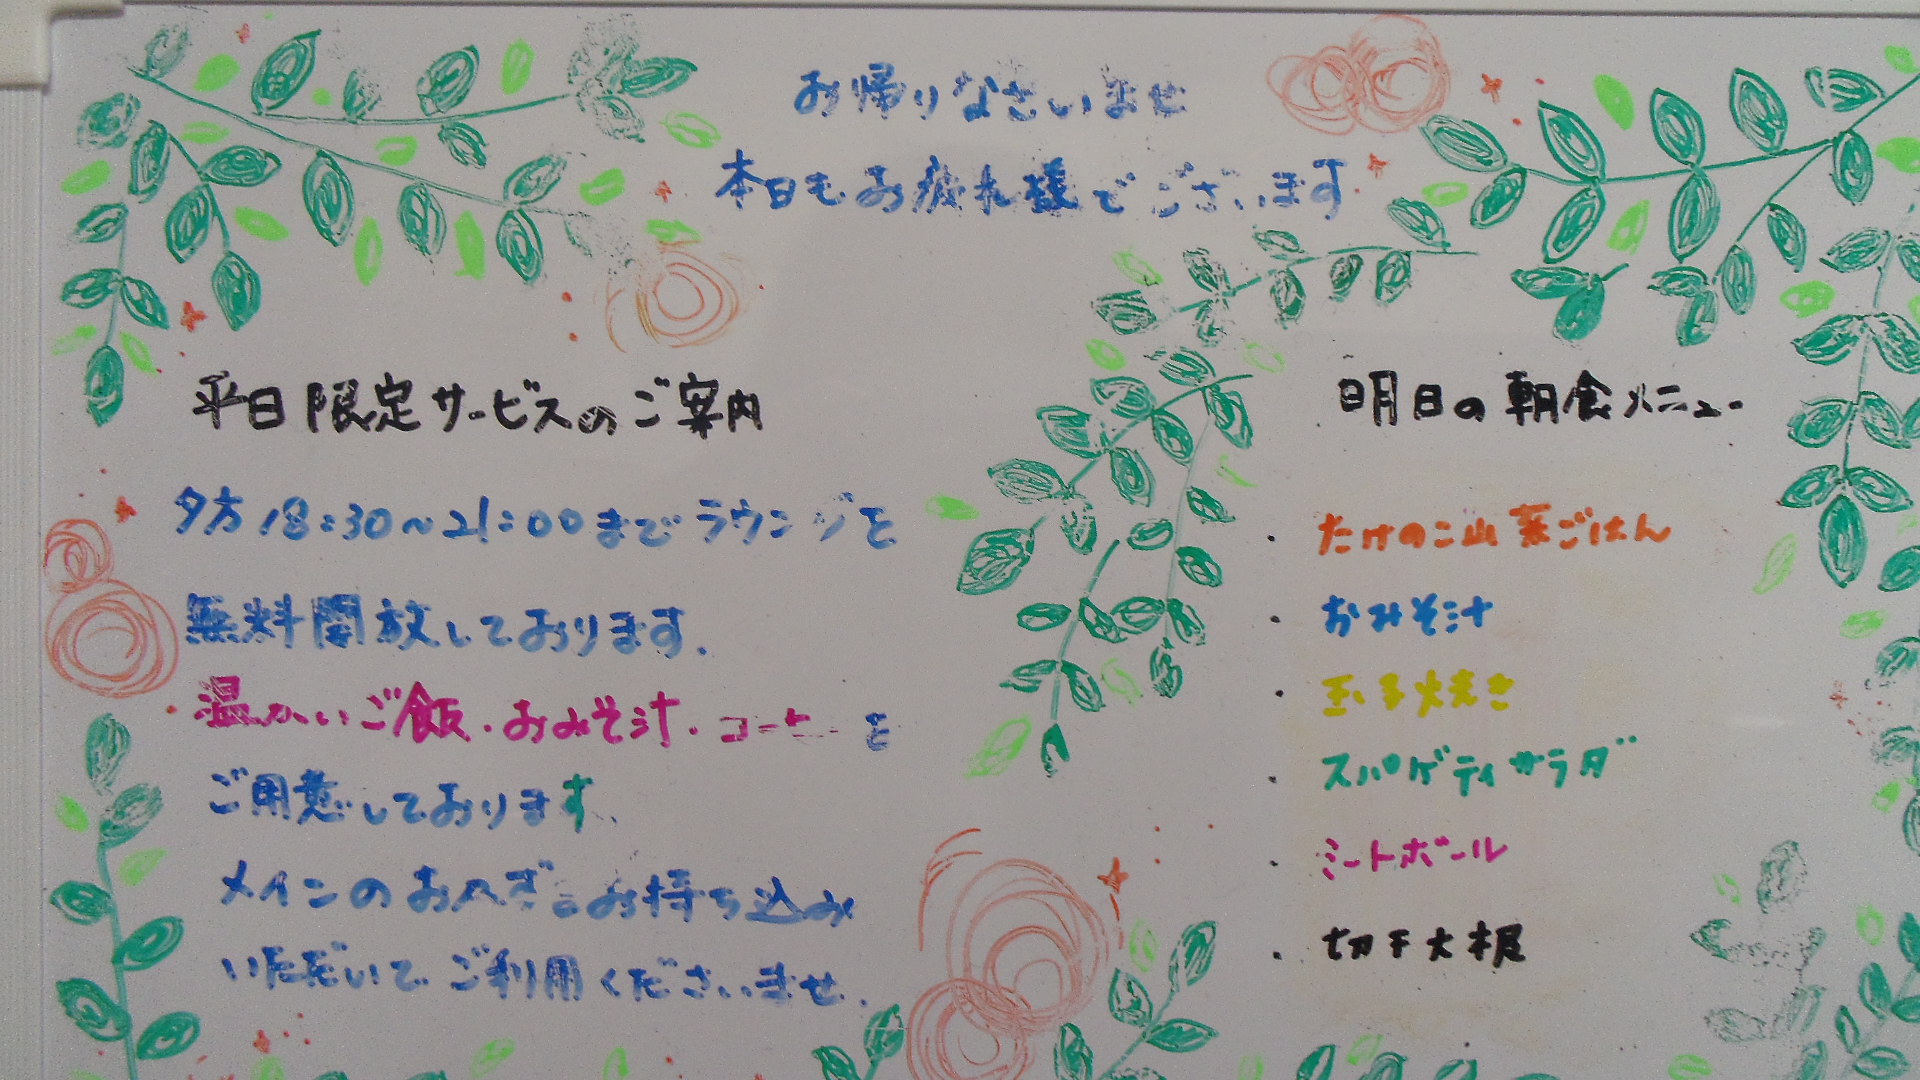 お帰りなさいませ
本日もお疲れ様でございます
平日限定サービスのご案内
夕方18:30~21:00までラウンジを
無料開放しております.
温かいご飯・おみそ汁・コーヒーを
ご用意しております.
メインのおかずをお持ち込み
いただいてご利用くださいませ.
明日の朝食メニュー
・たけのこ山菜ごはん
・おみそ汁
・玉子焼き
・スパゲティサラダ
・ミートボール
・切干大根